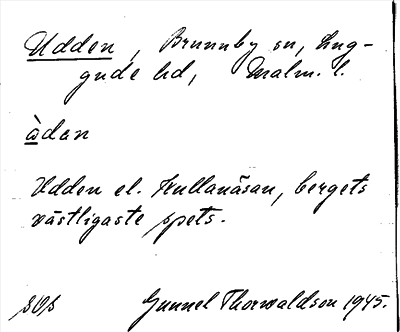 Udden, Brunnby sn, Lug-
gude hd, Malm. l.
àdan
Udden el. Kullanäsan, bergets
västligaste spets.
SOs Gunnel Thorwaldson 1945.